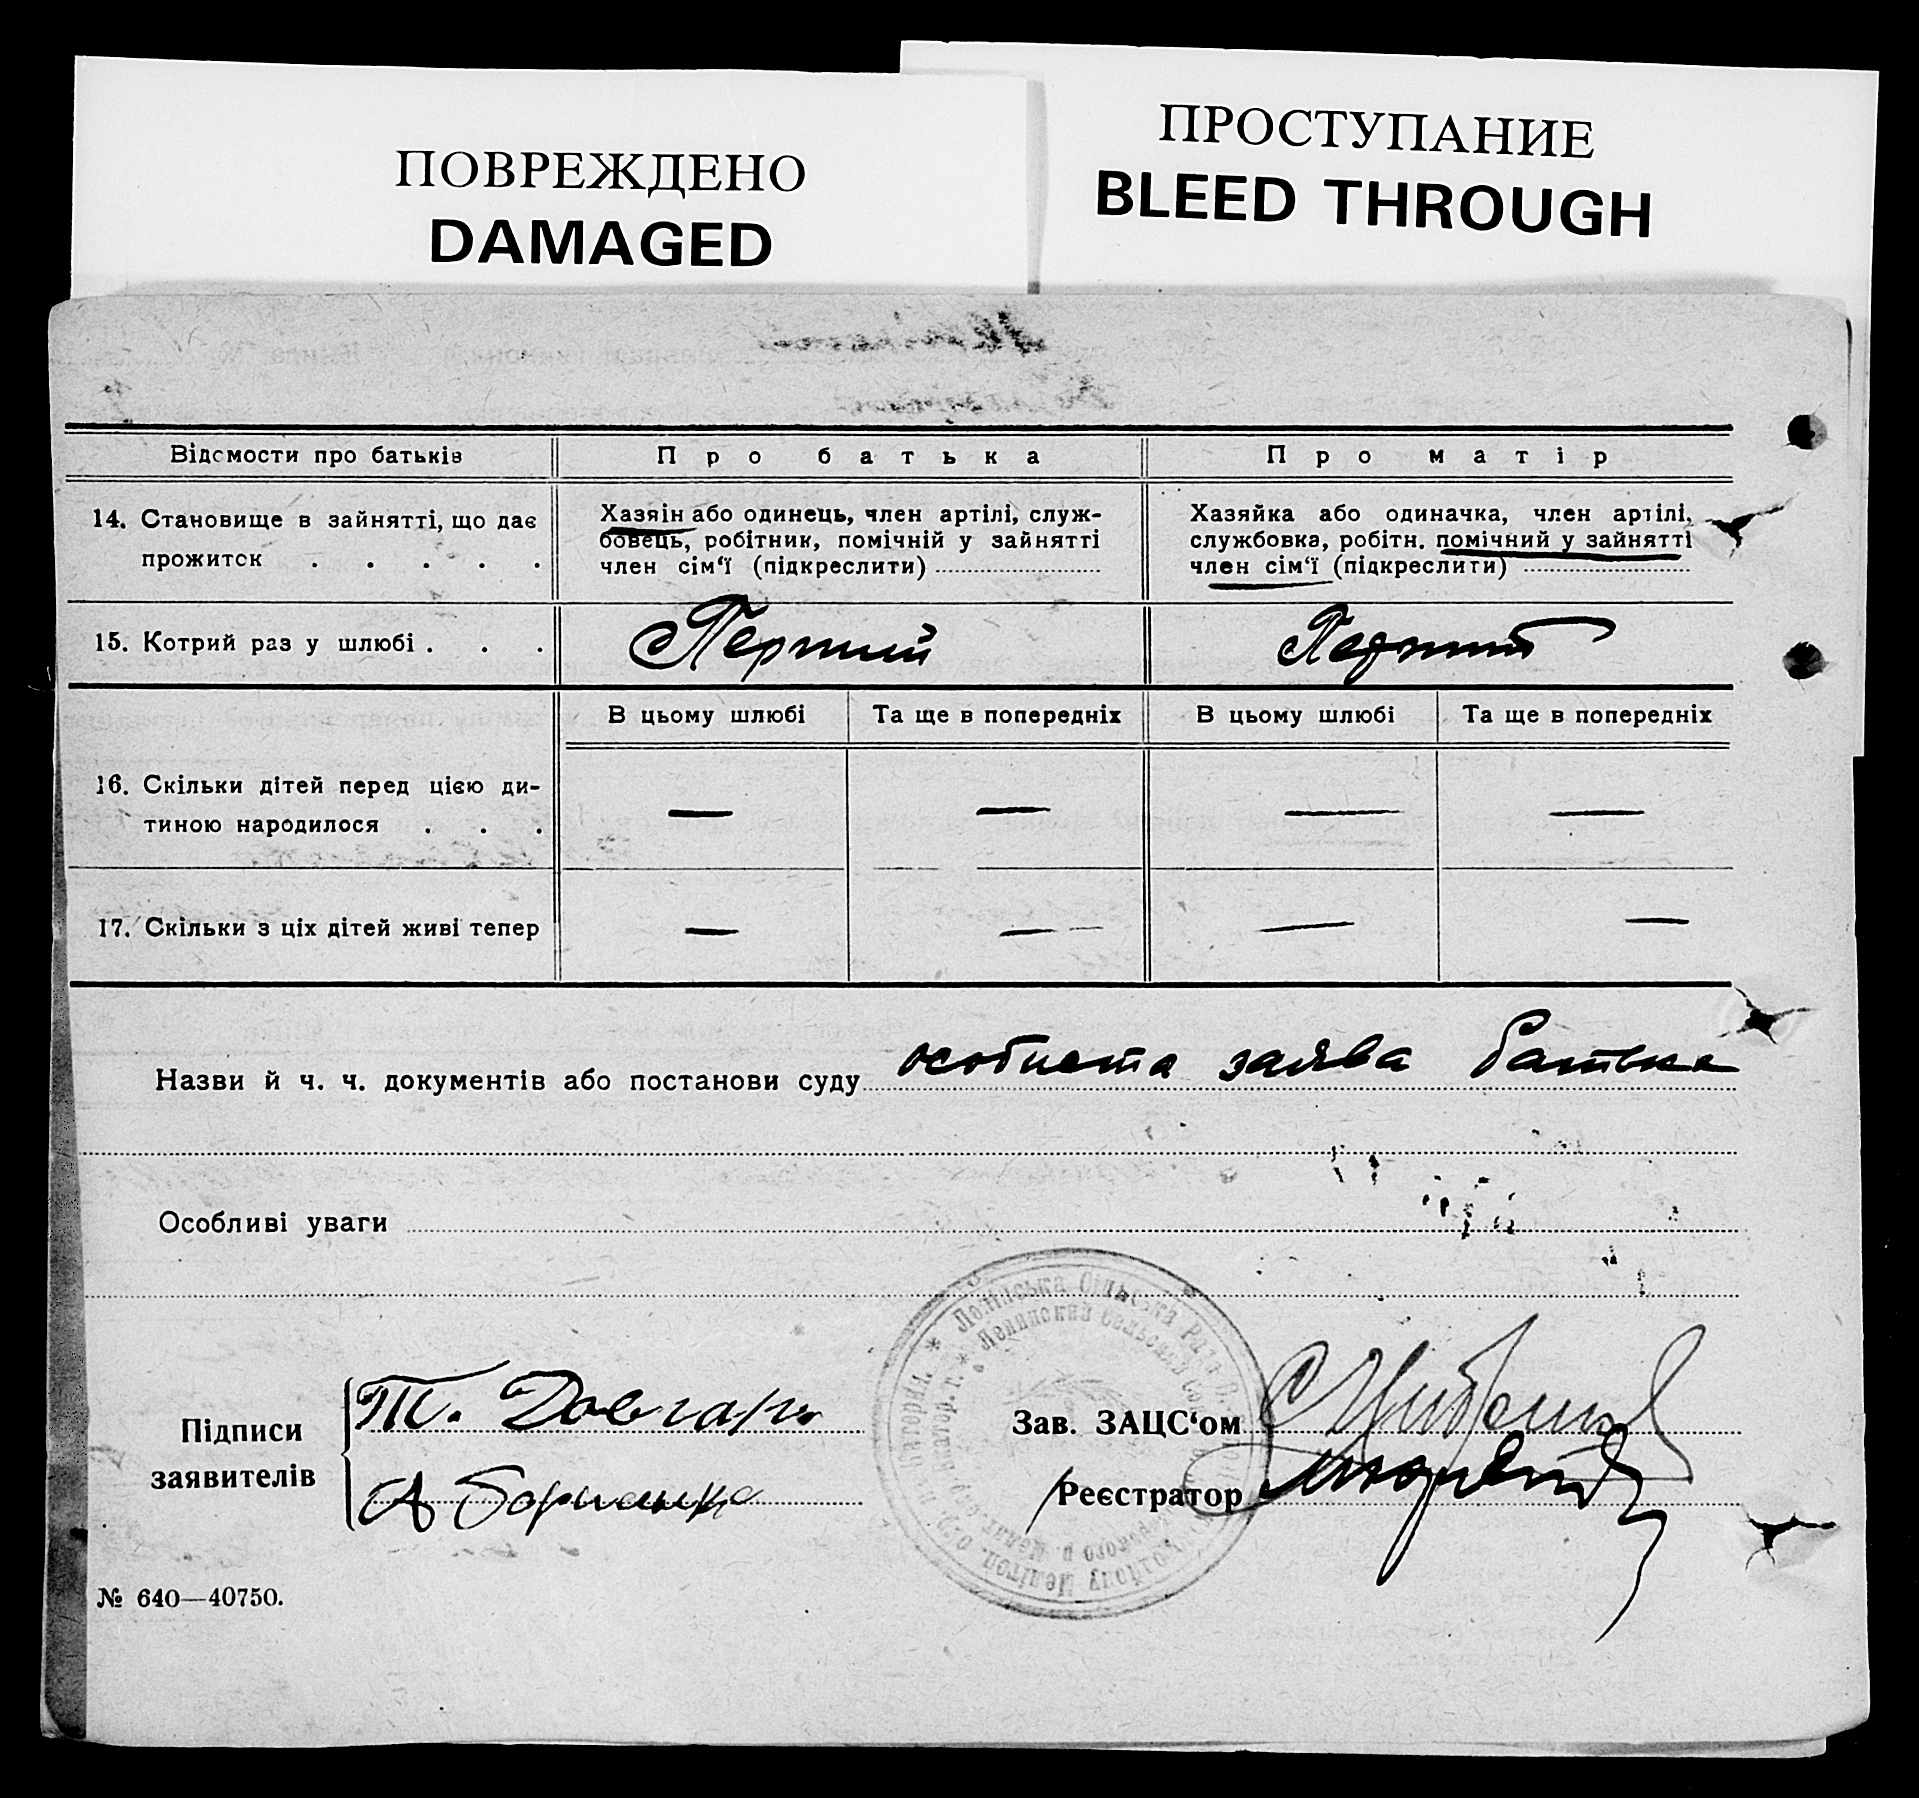 ПОВРЕЖДЕНО
DAMAGED
ПРОСТУПАНИЕ
BLEED THROUGH
Відомости про батьків
Про батька
Про матір
14. Становище в зайнятті, що дає
прожиток . . . . .
Хазяїн або одинець, член артілі, служ-
бовець, робітник, помічній у зайнятті
член сім‘ї (підкреслити)
Хазяйка або одиначка, член артілі,
службовка, робітн. помічний у зайнятті
член сім‘ї (підкреслити)
15. Котрий раз у шлюбі . . .
Перший
Перший
В цьому шлюбі
Та ще в попередніх
В цьому шлюбі
Та ще в попередніх
16. Скільки дітей перед цією ди-
тиною народилося . . .
— — — —
17. Скільки з ціх дітей живі тепер
— — — —
Назви й ч. ч. документів або постанови суду особиста заява батька
Особливі уваги
Підписи
заявителів
Т. Довгаль
А
Зав. ЗАЦС‘ом
Реєстратор
№ 640—40750.